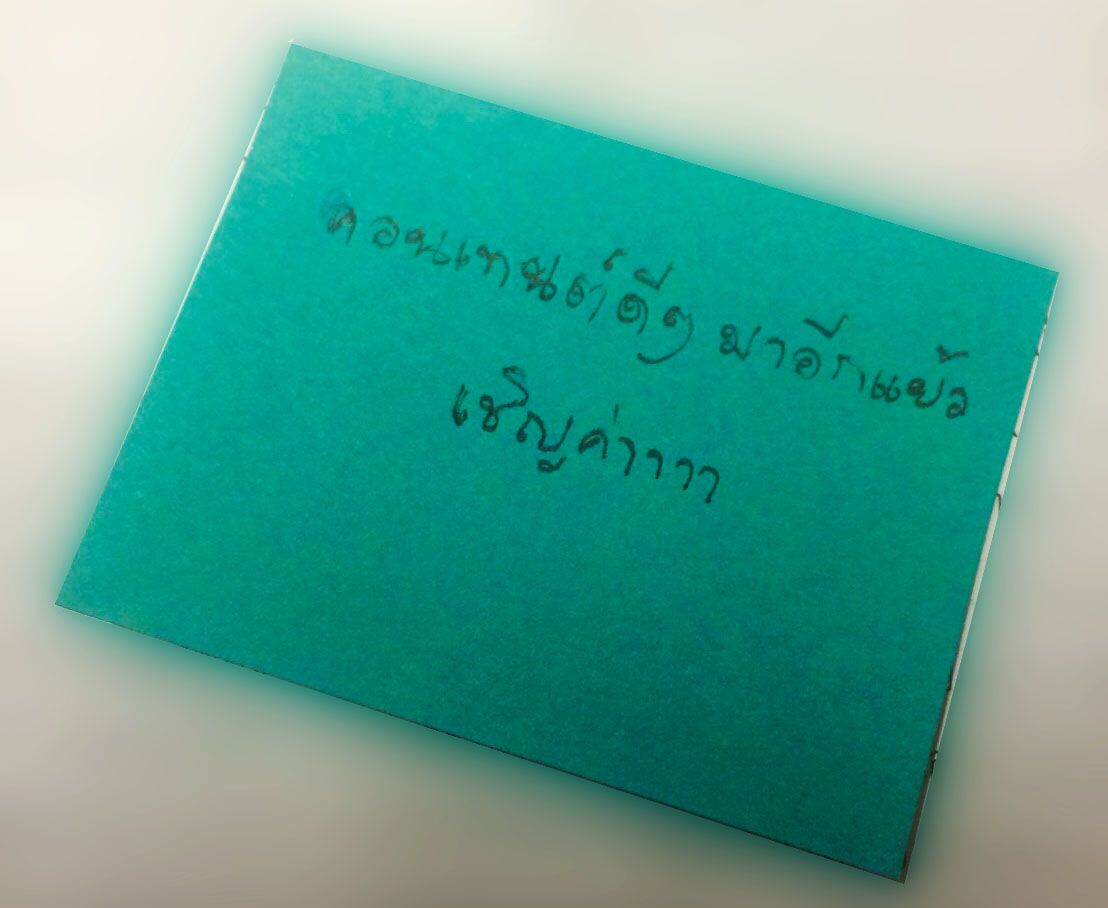 คอนเทนต์ดีๆ มาอีกแย้ว
เชิญค่าาาา